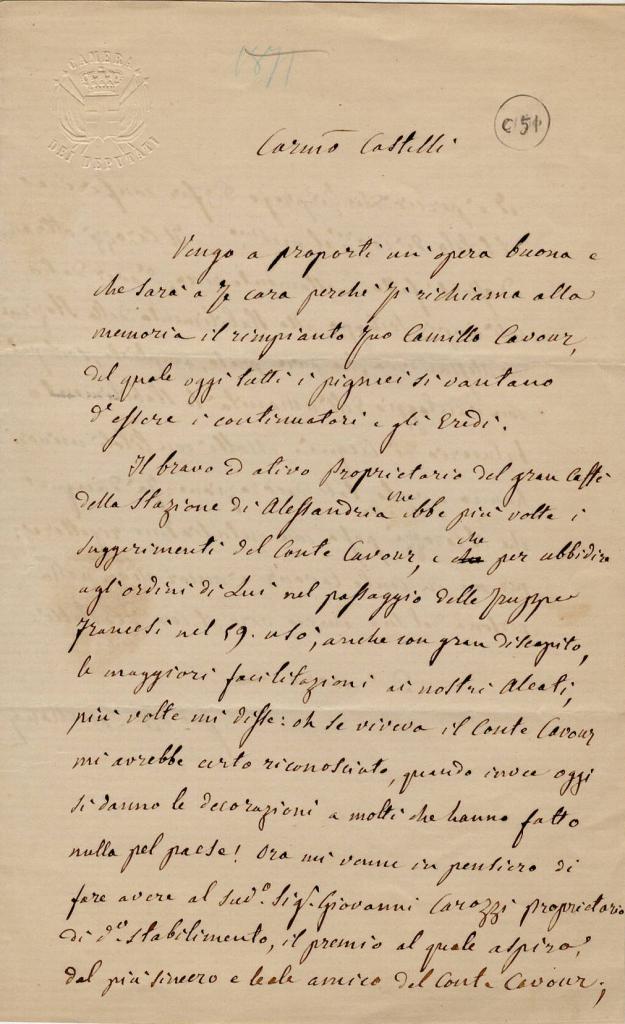 CAMERA
DEI DEPUTATI
1871
C151
Carmo Castelli
Vengo a proporti un'opera buona e
che sarà a Te cara perché Ti richiama alla
memoria il rimpianto Tuo Camillo Cavour,
del quale oggi tutti i pigmei si vantano
d'essere i continuatori e gli Eredi.
Il bravo ed ativo Proprietario del gran Caffè
della Stazione di Alessandria che ebbe più volte i
suggerimenti del Conte Cavour, e che per ubbidire
agl'ordini di Lui nel passaggio delle truppe
Francesi nel 59. usò, anche con gran discapito,
le maggiori facilitazioni ai nostri Aleati,
più volte mi disse: oh se viveva il Conte Cavour
mi avrebbe certo riconosciuto, quando invece oggi
si danno le decorazioni a molti che hanno fatto
nulla pel paese! Ora mi venne in pensiero di
fare avere al sudo. Sigr. Giovanni Carozzi proprietario
di do. stabilimento, il premio al quale aspira,
dal più sincero e leale amico del Conte Cavour;